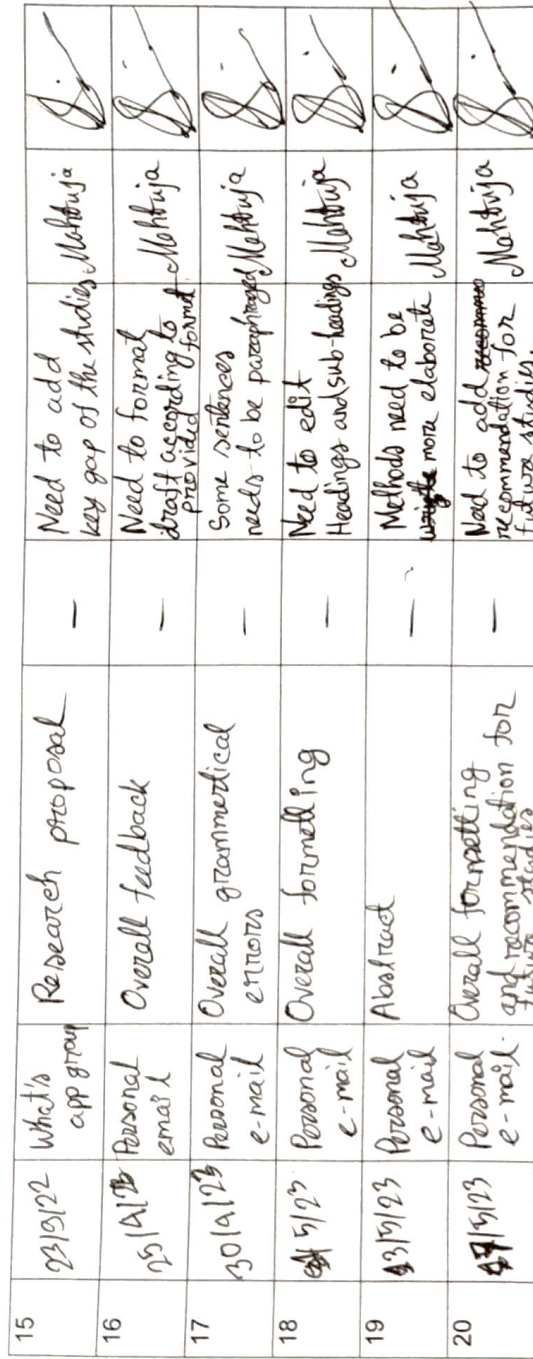 15
23/3/22
What's
app group
Research proposal
—
Need to add
key gap of the studies
Mahtuja
16
25/4/23
Personal
email
Overall feedback
—
Need to format
draft according to
provided format
Mahtuja
17
30/4/23
Personal
e-mail
Overall grammertical
errors
—
Some sentences
needs to be paraphrased
Mahtuja
18
5/23
Personal
e-mail
Overall formetting
—
Need to edit
Headings and sub-headings
Mahtuja
19
3/5/23
Personal
e-mail
Abstract
—
Methods need to be
more elaborate
Mahtuja
20
/5/23
Personal
e-mail.
Overall formetting
and recommendation for
future studies
—
Need to add
recommendation for
future studies.
Mahtuja